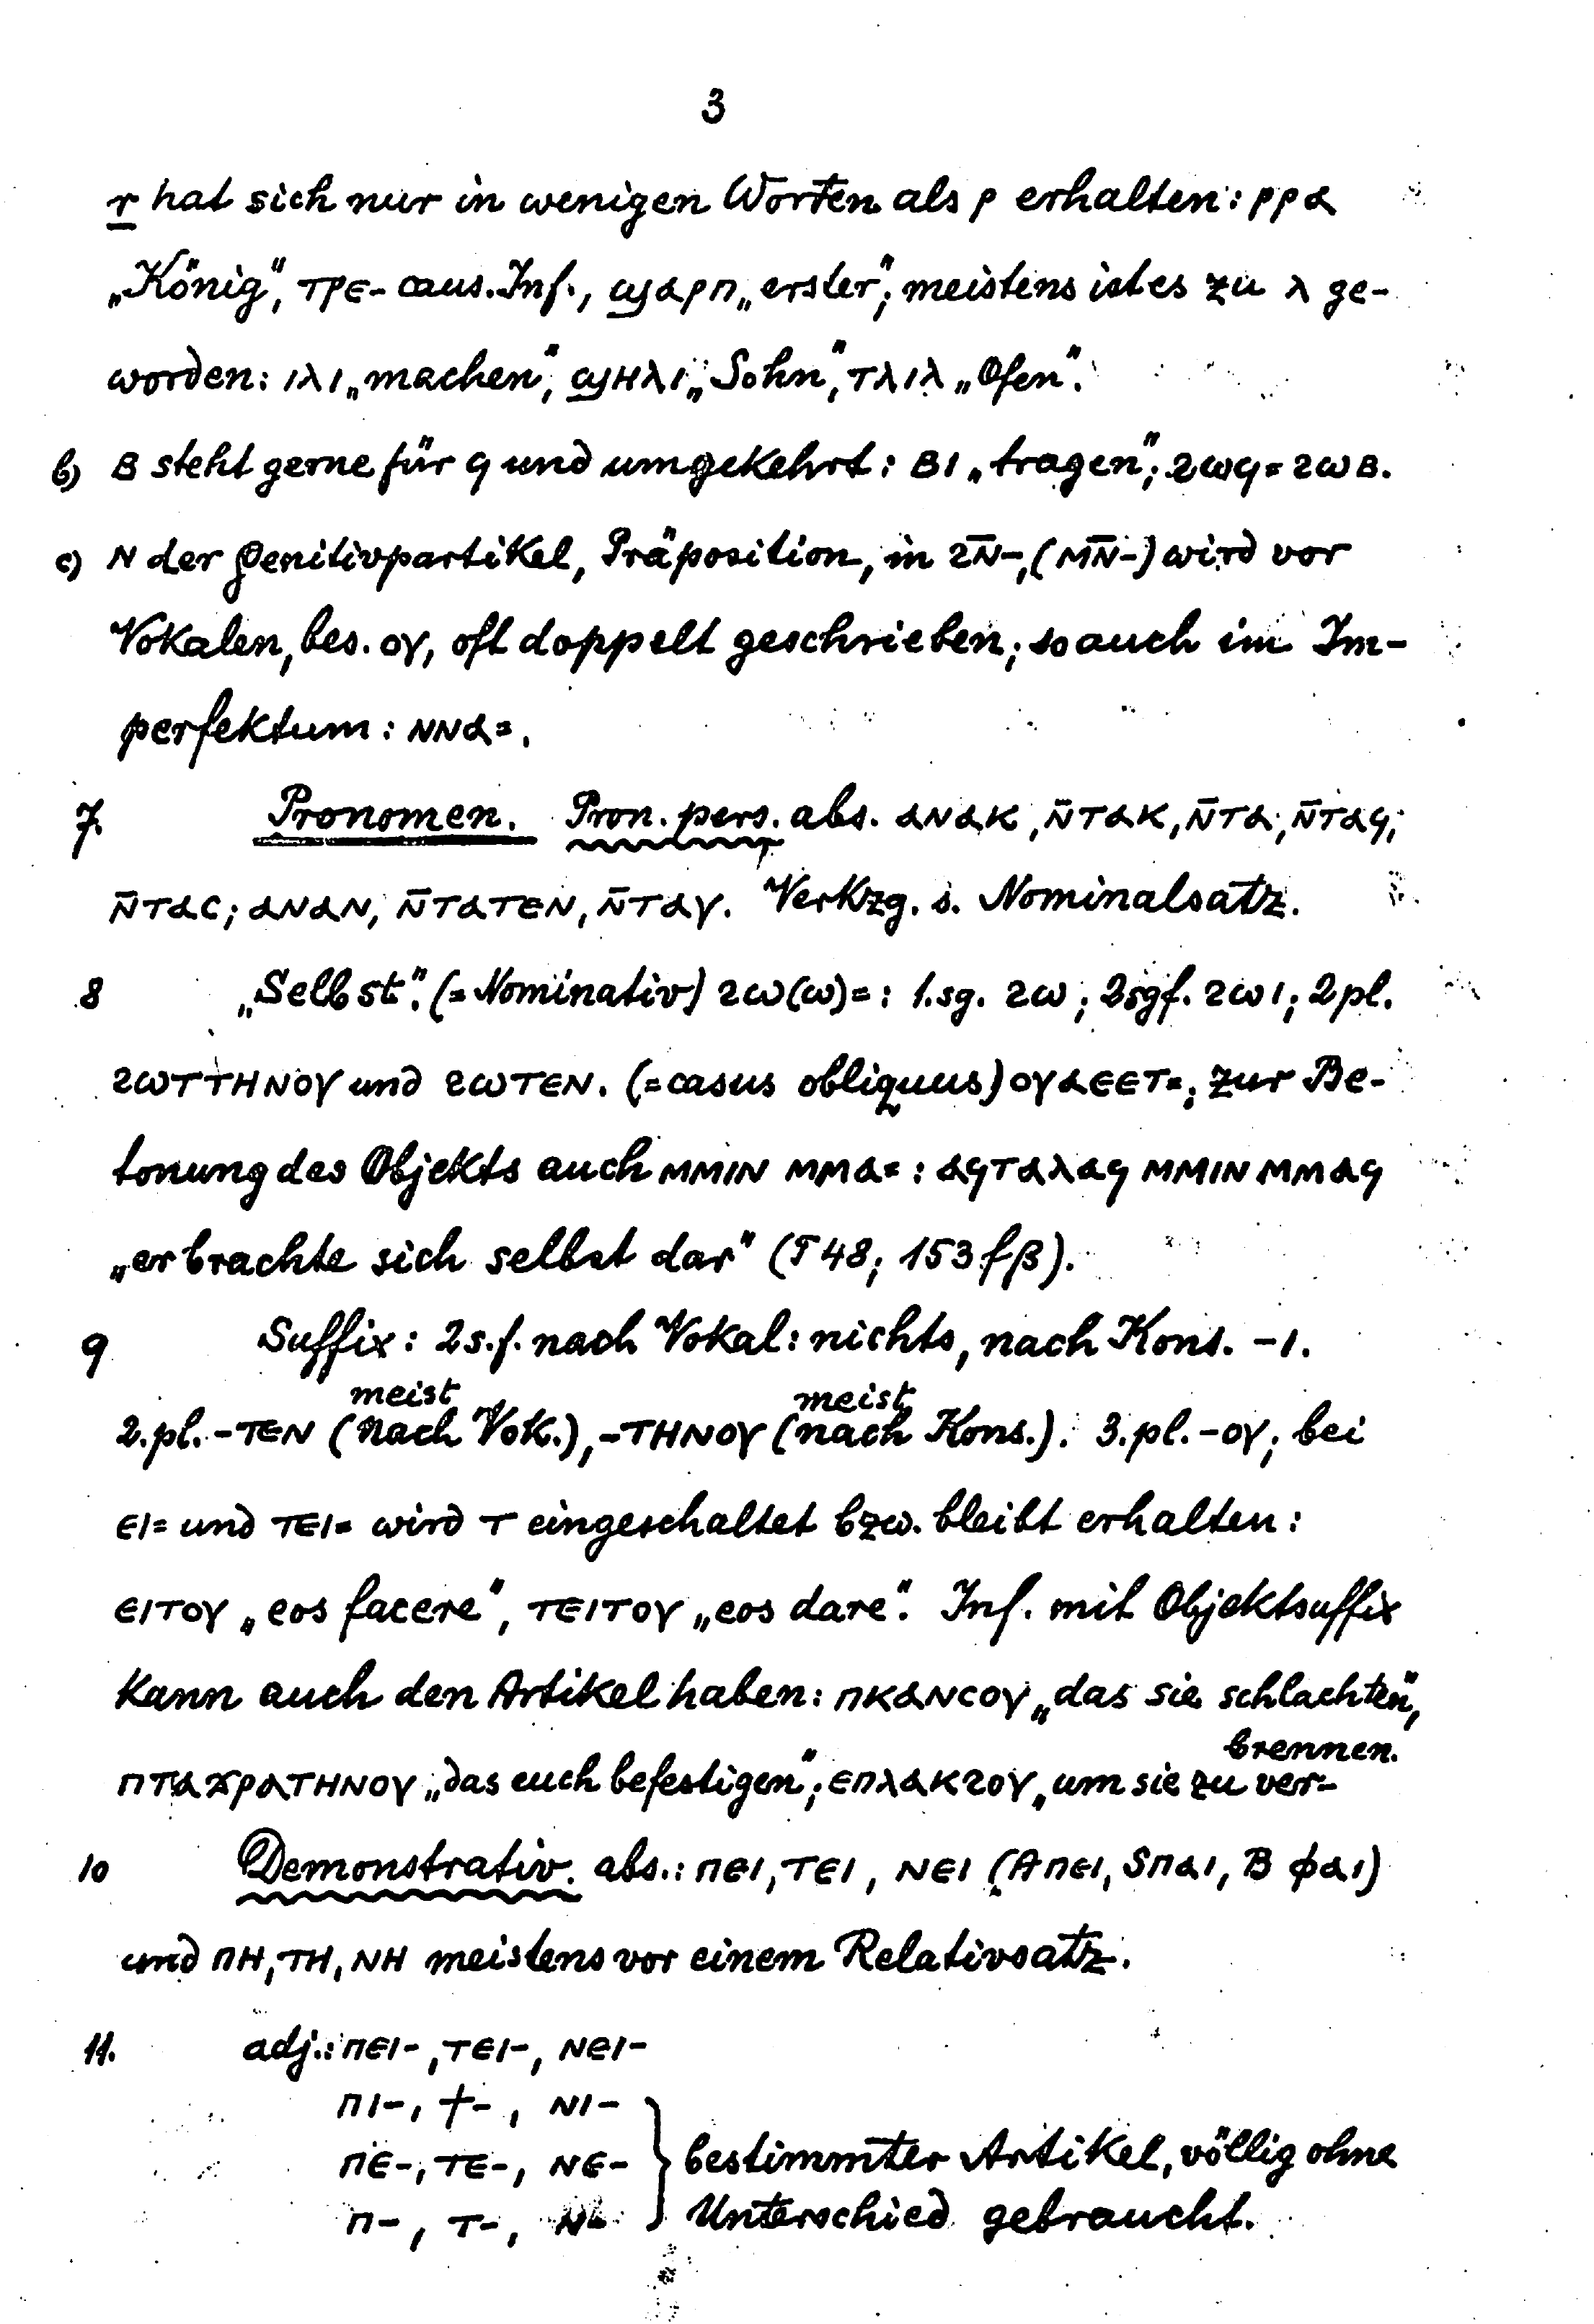 3
r hat sich nur in wenigen Worten als ⲣ erhalten: ⲣⲣⲁ
„König", ⲧⲣⲉ- caus. Inf., ϣⲁⲣⲡ „erster"; meistens ist es zu ⲗ ge-
worden: ⲓⲗⲓ „machen", ϣⲏⲗⲓ „Sohn", ⲧⲗⲓⲗ „Ofen".
b) ⲃ steht gerne für ϥ und umgekehrt: ⲃⲓ „tragen"; ϩⲱϥ = ϩⲱⲃ.
c) ⲛ der Genitivpartikel, Präposition, in ϩⲛ̅-, (ⲙⲛ̅-) wird vor
Vokalen, bes. ⲟⲩ, oft doppelt geschrieben; so auch im Im-
perfektum: ⲛⲛⲁ=.
7. Pronomen. Pron. pers. abs. ⲁⲛⲁⲕ, ⲛ̅ⲧⲁⲕ, ⲛ̅ⲧⲁ, ⲛ̅ⲧⲁϥ;
ⲛ̅ⲧⲁⲥ; ⲁⲛⲁⲛ, ⲛ̅ⲧⲁⲧⲉⲛ, ⲛ̅ⲧⲁⲩ. Verkzg. s. Nominalsatz.
8 „Selbst". (= Nominativ) ϩⲱ(ⲱ)=: 1.sg. ϩⲱ; 2sgf. ϩⲱⲓ; 2pl.
ϩⲱⲧⲧⲏⲛⲟⲩ und ϩⲱⲧⲉⲛ. (= casus obliquus) ⲟⲩⲁⲉⲉⲧ=; zur Be-
tonung des Objekts auch ⲙⲙⲓⲛ ⲙⲙⲁ=: ⲁϥⲧⲁⲗⲁϥ ⲙⲙⲓⲛ ⲙⲙⲁϥ
„er brachte sich selbst dar" (T 48; 153 f β).
9 Suffix: 2s.f. nach Vokal: nichts, nach Kons. -ⲓ.
2.pl. -ⲧⲉⲛ (meist nach Vok.), -ⲧⲏⲛⲟⲩ (meist nach Kons.). 3.pl. -ⲟⲩ; bei
ⲉⲓ= und ⲧⲉⲓ= wird ⲧ eingeschaltet bzw. bleibt erhalten:
ⲉⲓⲧⲟⲩ „eos facere", ⲧⲉⲓⲧⲟⲩ „eos dare". Inf. mit Objektsuffix
kann auch den Artikel haben: ⲡⲕⲁⲛⲥⲟⲩ „das sie schlachten",
ⲡⲧⲁϫⲣⲁⲧⲏⲛⲟⲩ „das euch befestigen"; ⲉⲡⲗⲁⲕϩⲟⲩ „um sie zu ver-
brennen.
10 Demonstrativ. abs.: ⲡⲉⲓ, ⲧⲉⲓ, ⲛⲉⲓ (A ⲡⲉⲓ, S ⲡⲁⲓ, B ⲫⲁⲓ)
und ⲡⲏ, ⲧⲏ, ⲛⲏ meistens vor einem Relativsatz.
11. adj.: ⲡⲉⲓ-, ⲧⲉⲓ-, ⲛⲉⲓ-
ⲡⲓ-, ϯ-, ⲛⲓ-
ⲡⲉ-, ⲧⲉ-, ⲛⲉ- } bestimmter Artikel, völlig ohne
ⲡ-, ⲧ-, ⲛ- Unterschied gebraucht.